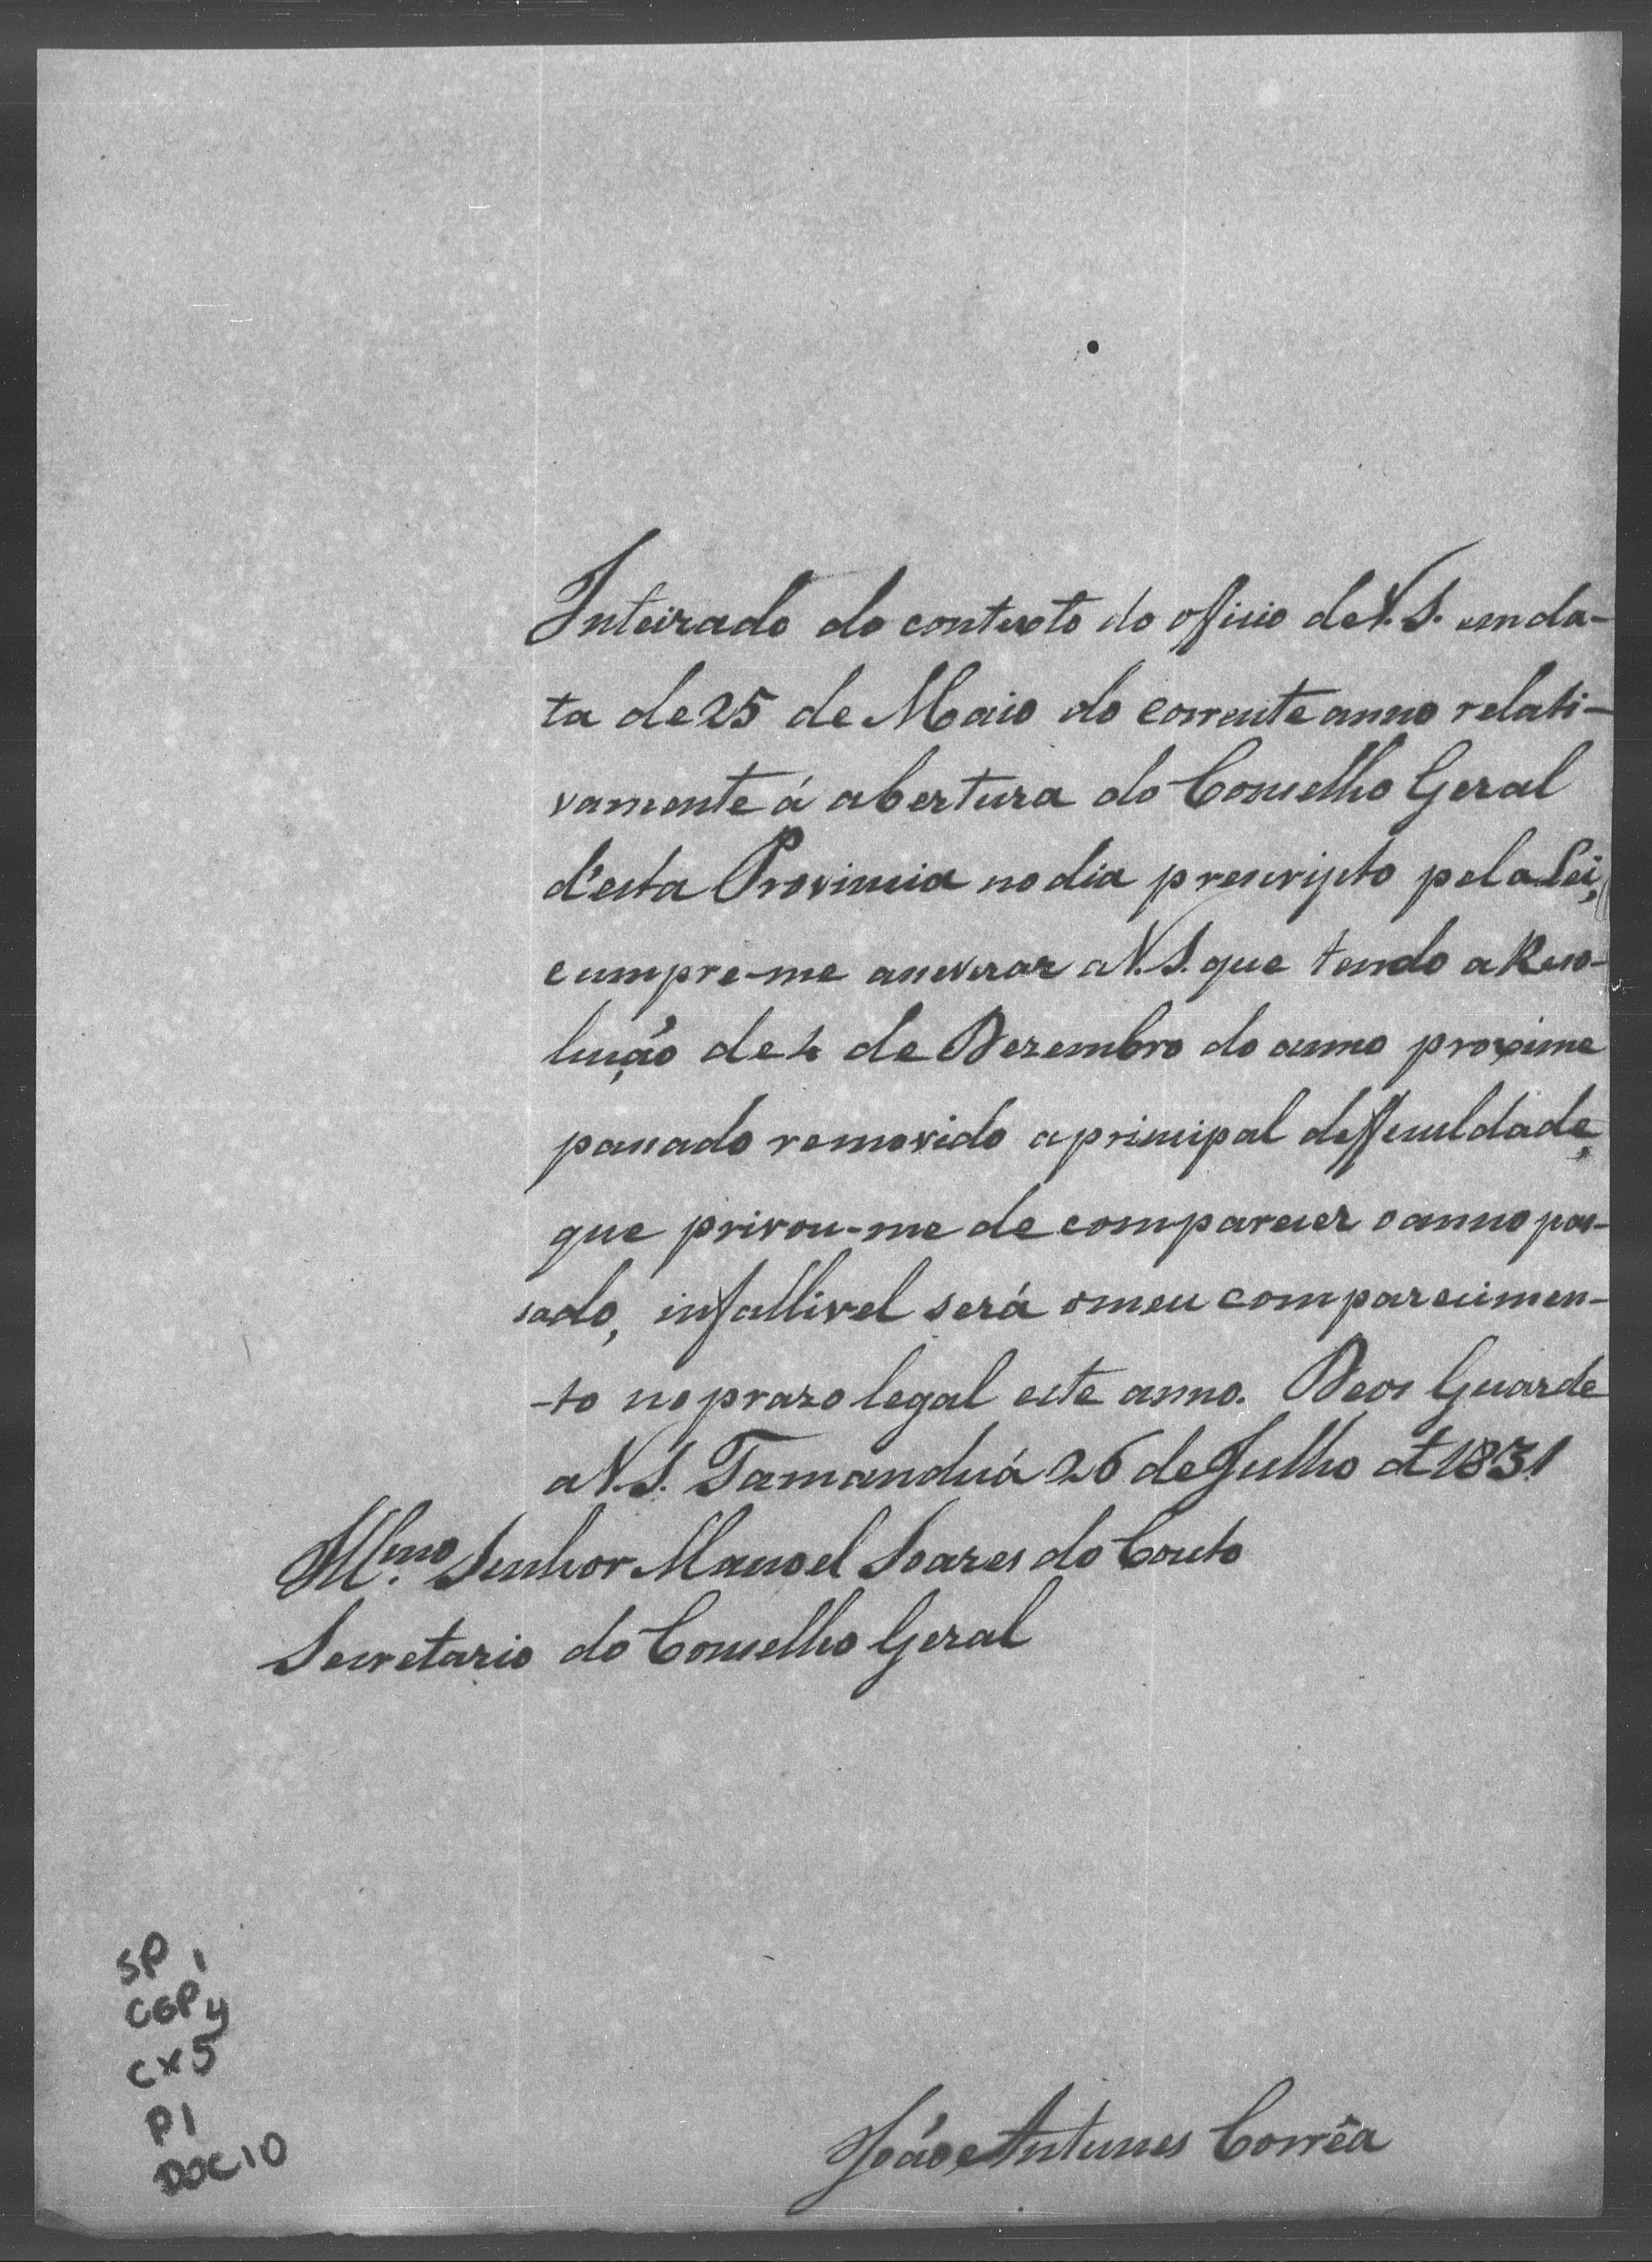 Inteirado do contexto do officio de V.S. em da-
ta de 25 de Maio do corrente anno relati-
vamente á abertura do Conselho Geral
d'esta Provincia no dia prescripto pela Lei,
cumpre-me asseverar a V.S. que tendo a Reso-
lução de 4 de Dezembro do anno proximo
passado removido a principal defficuldade,
que privou-me de comparecer o anno pas-
sado, infallivel será o meu comparecimen-
-to no prazo legal este anno. Deos Guarde
a V.S. Tamanduá 26 de Julho de 1831
Illmo. Senhor Manoel Soares do Couto
Secretario do Conselho Geral
João Antunes Corrêa
SP 1
CGP 4
CX 5
P1
DOC 10